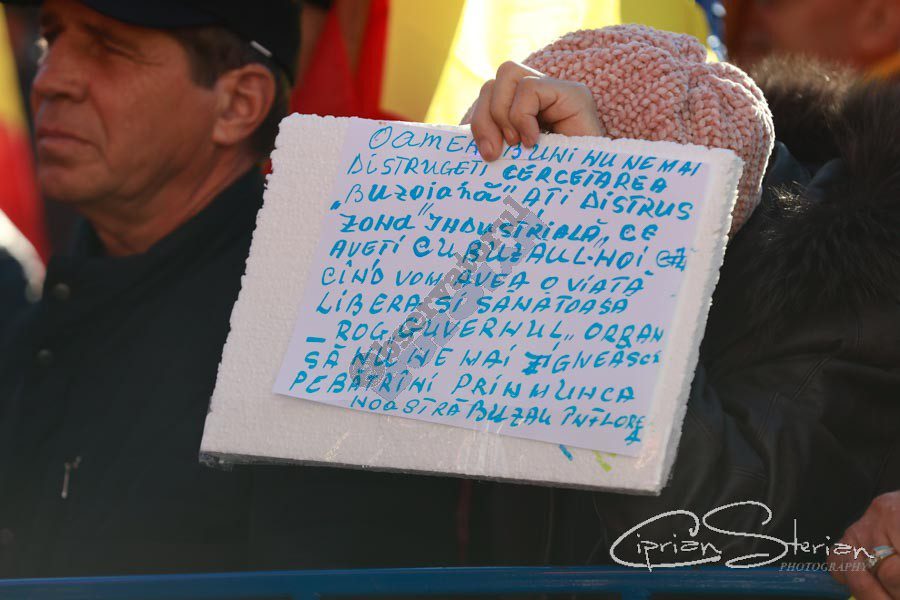 OAMENI BUNI NU NE MAI
DISTRUGEȚI CERCETAREA
„BUZOIANĂ" AȚI DISTRUS
ZONA „INDUSTRIALĂ„ CE
AVEȚI CU BUZĂUL-NOI
CÎND VOM AVEA O VIAȚĂ
LIBERA ȘI SANATOASĂ
_ ROG GUVERNUL „ ORBAN
SĂ NU NE MAI JIGNEASCĂ
PE BĂTRÎNI PRIN MUNCA
NOASTRĂ BUZAU ÎNFLOREA
Observatorul
Ciprian Sterian
PHOTOGRAPHY